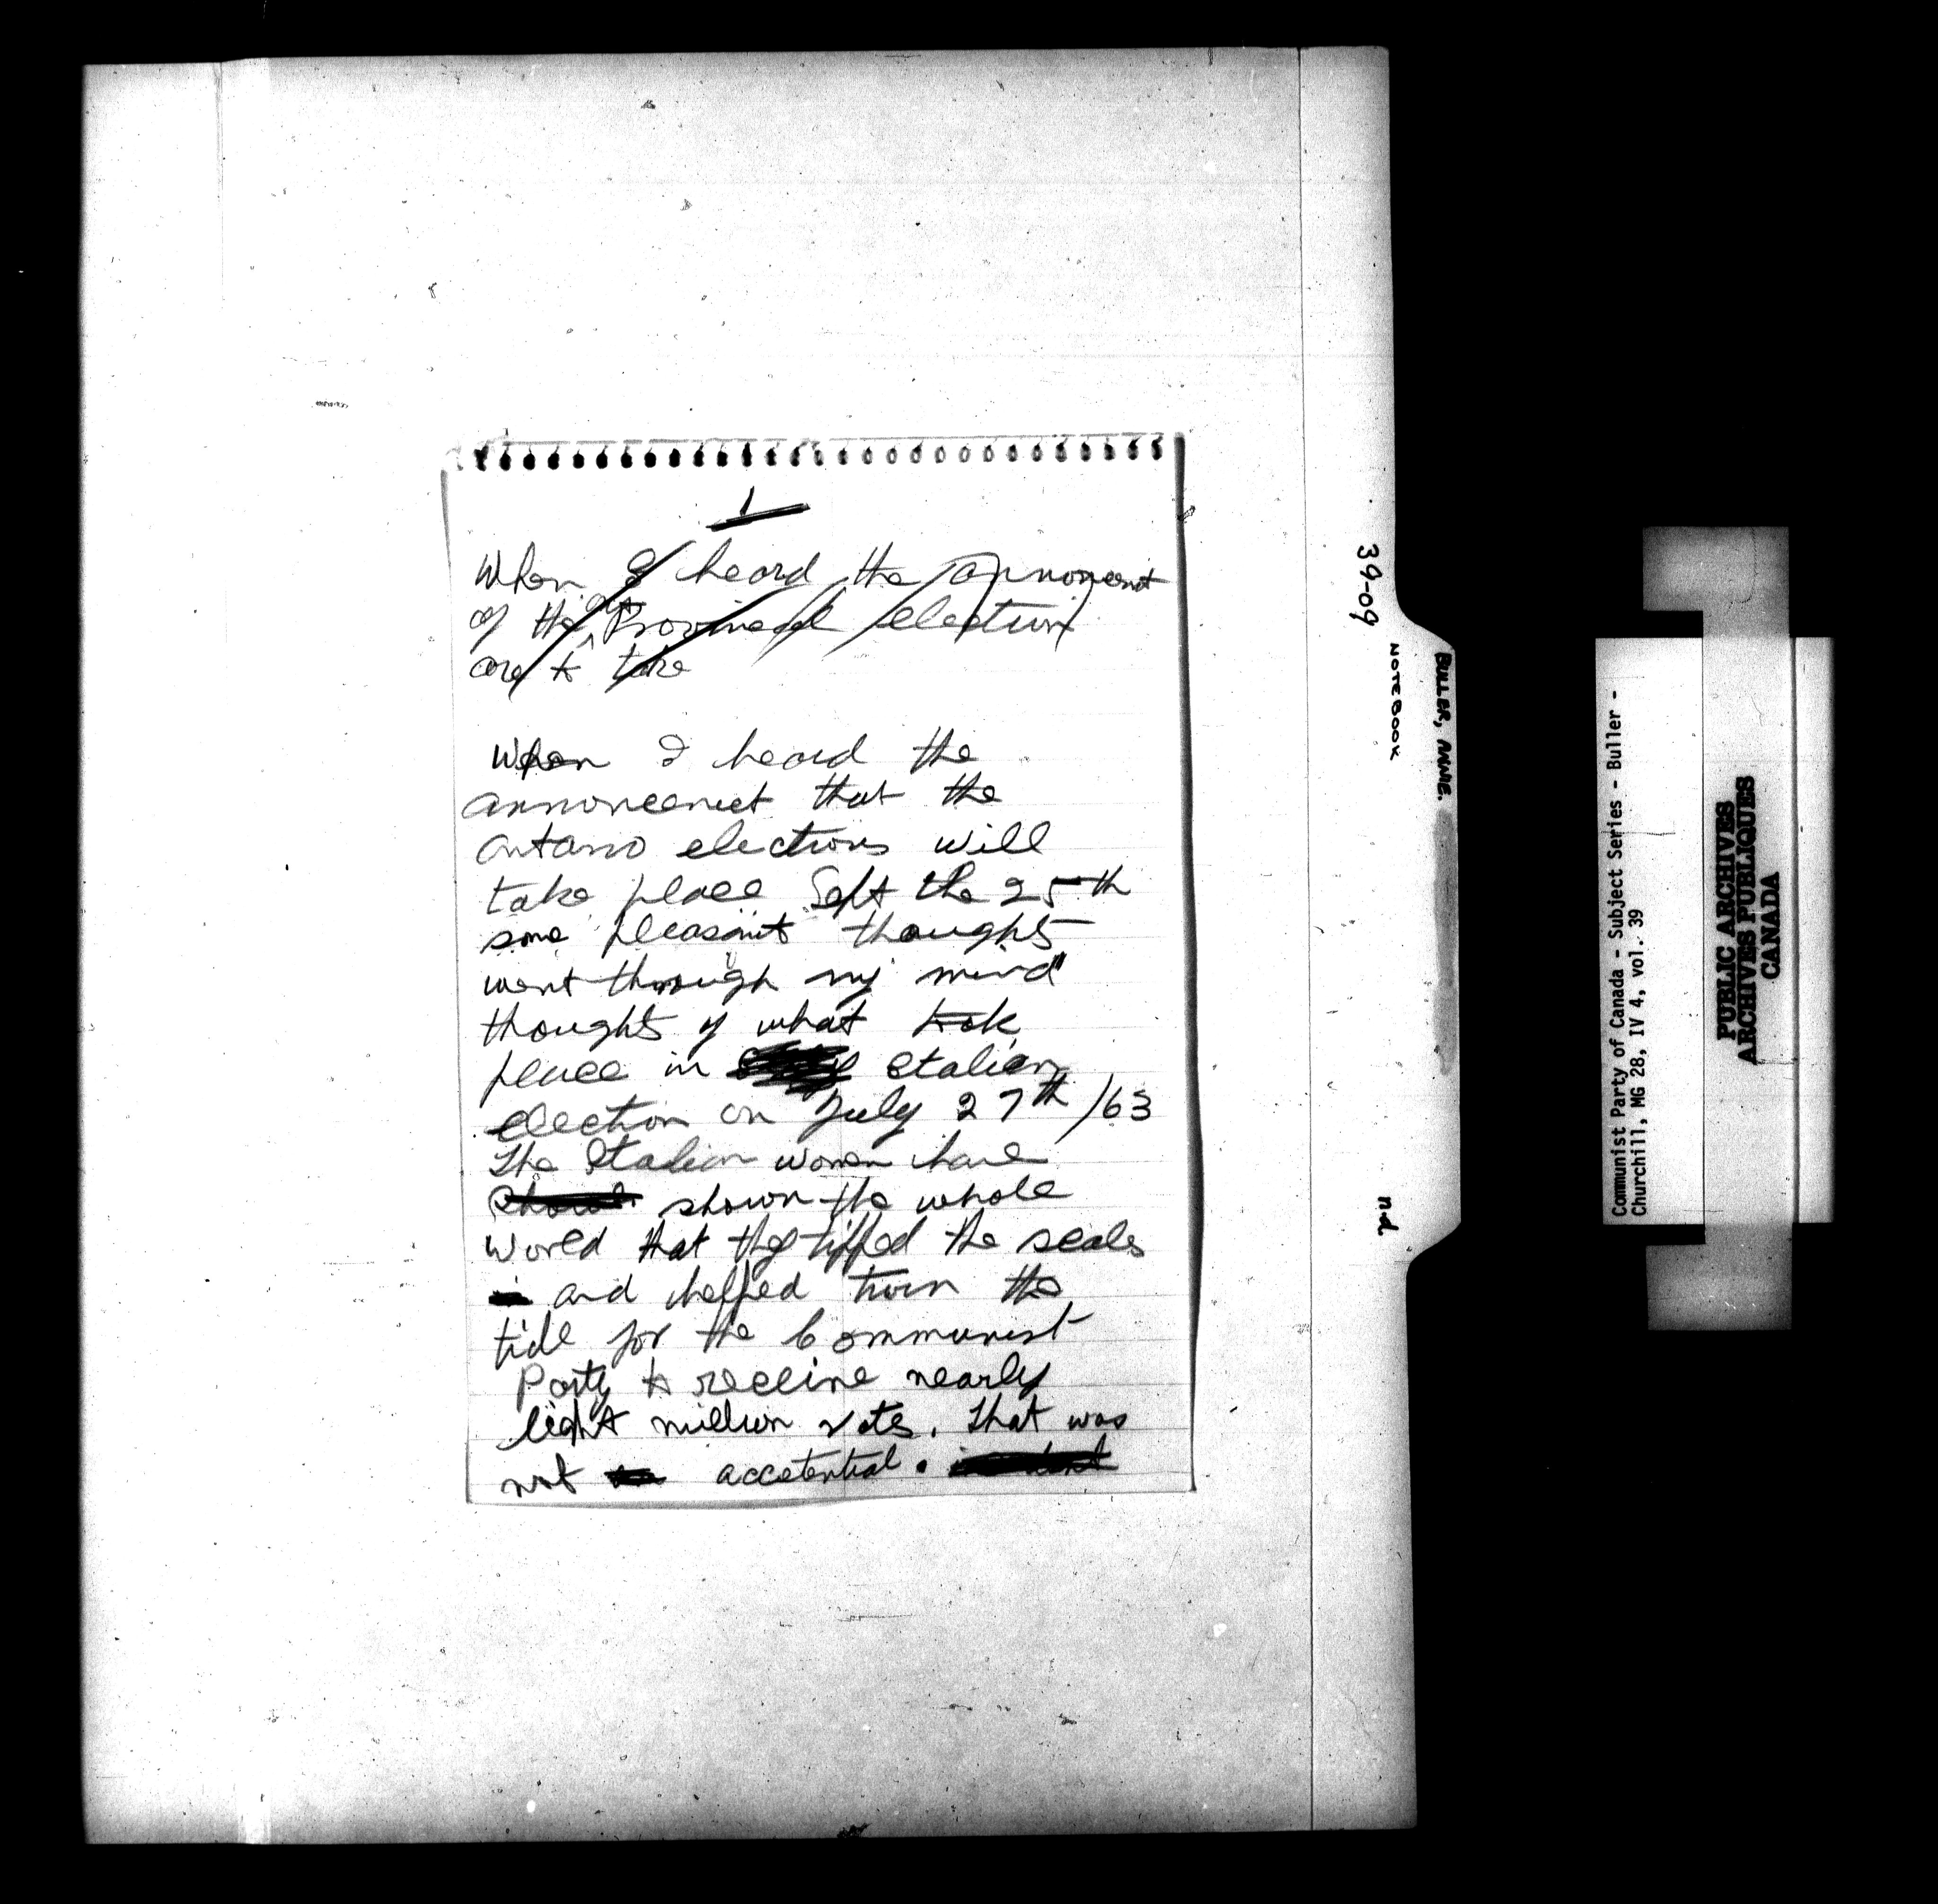 1
When I heard the announcent
of the Provincial election
are to take
When I heard the
announcemet that the
Ontario elections will
take place Sept the 25th
some pleasant thoughts
went through my mind
thoughts of what took
place in Italian
election on July 27th /63
The Italian women have
shown the whole
world that they tipped the scales
and helped turn the
tide for the Communist
Party to receive nearly
eight million vots. That was
not accetential.
39-09
NOTEBOOK
BULLER, ANNIE.
n.d
Communist Party of Canada - Subject Series - Buller -
Churchill, MG 28, IV 4, vol. 39
PUBLIC ARCHIVES
ARCHIVES PUBLIQUES
CANADA